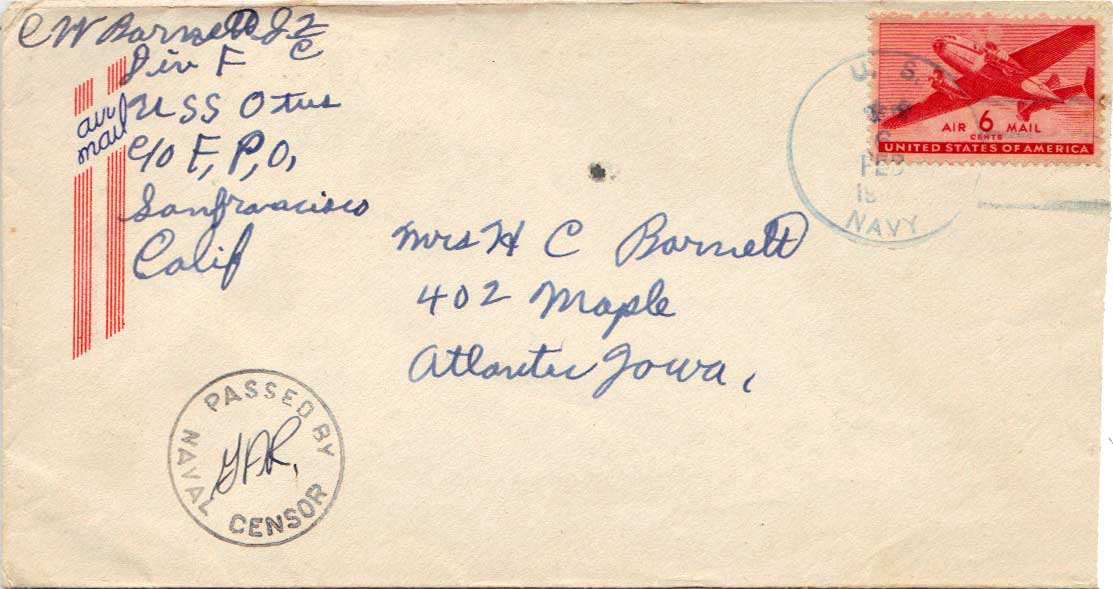 CW Barnett 2/C
Div F
air mail
USS Otus
c/o F,P,O,
Sanfrancisco
Calif
U. S.
6
FEB
NAVY
AIR 6 MAIL
CENTS
UNITED STATES OF AMERICA
Mrs H C Barnett
402 Maple
Atlantic Iowa,
PASSED BY
NAVAL
CENSOR